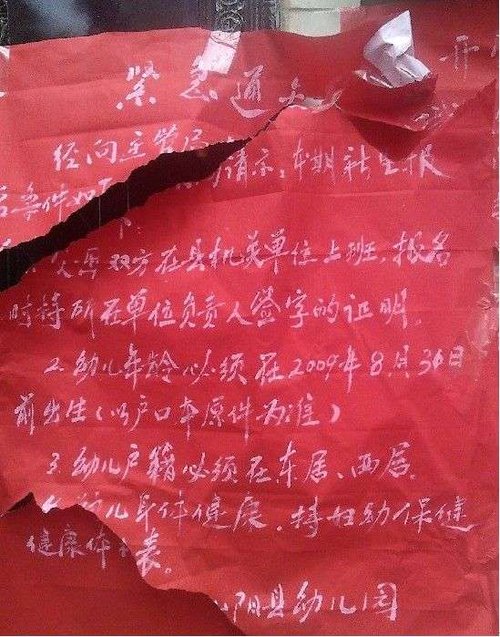 紧急通
经向主管局 请示，本期新生报
名条件如下
父母双方在县机关单位上班，报名
时持所在单位负责人签字的证明。
2.幼儿年龄必须在2009年8月30日
前出生（以户口本原件为准）
3.幼儿户籍必须在东居、西居。
幼儿身体健康，持妇幼保健
健康体 表。
阴县幼儿园